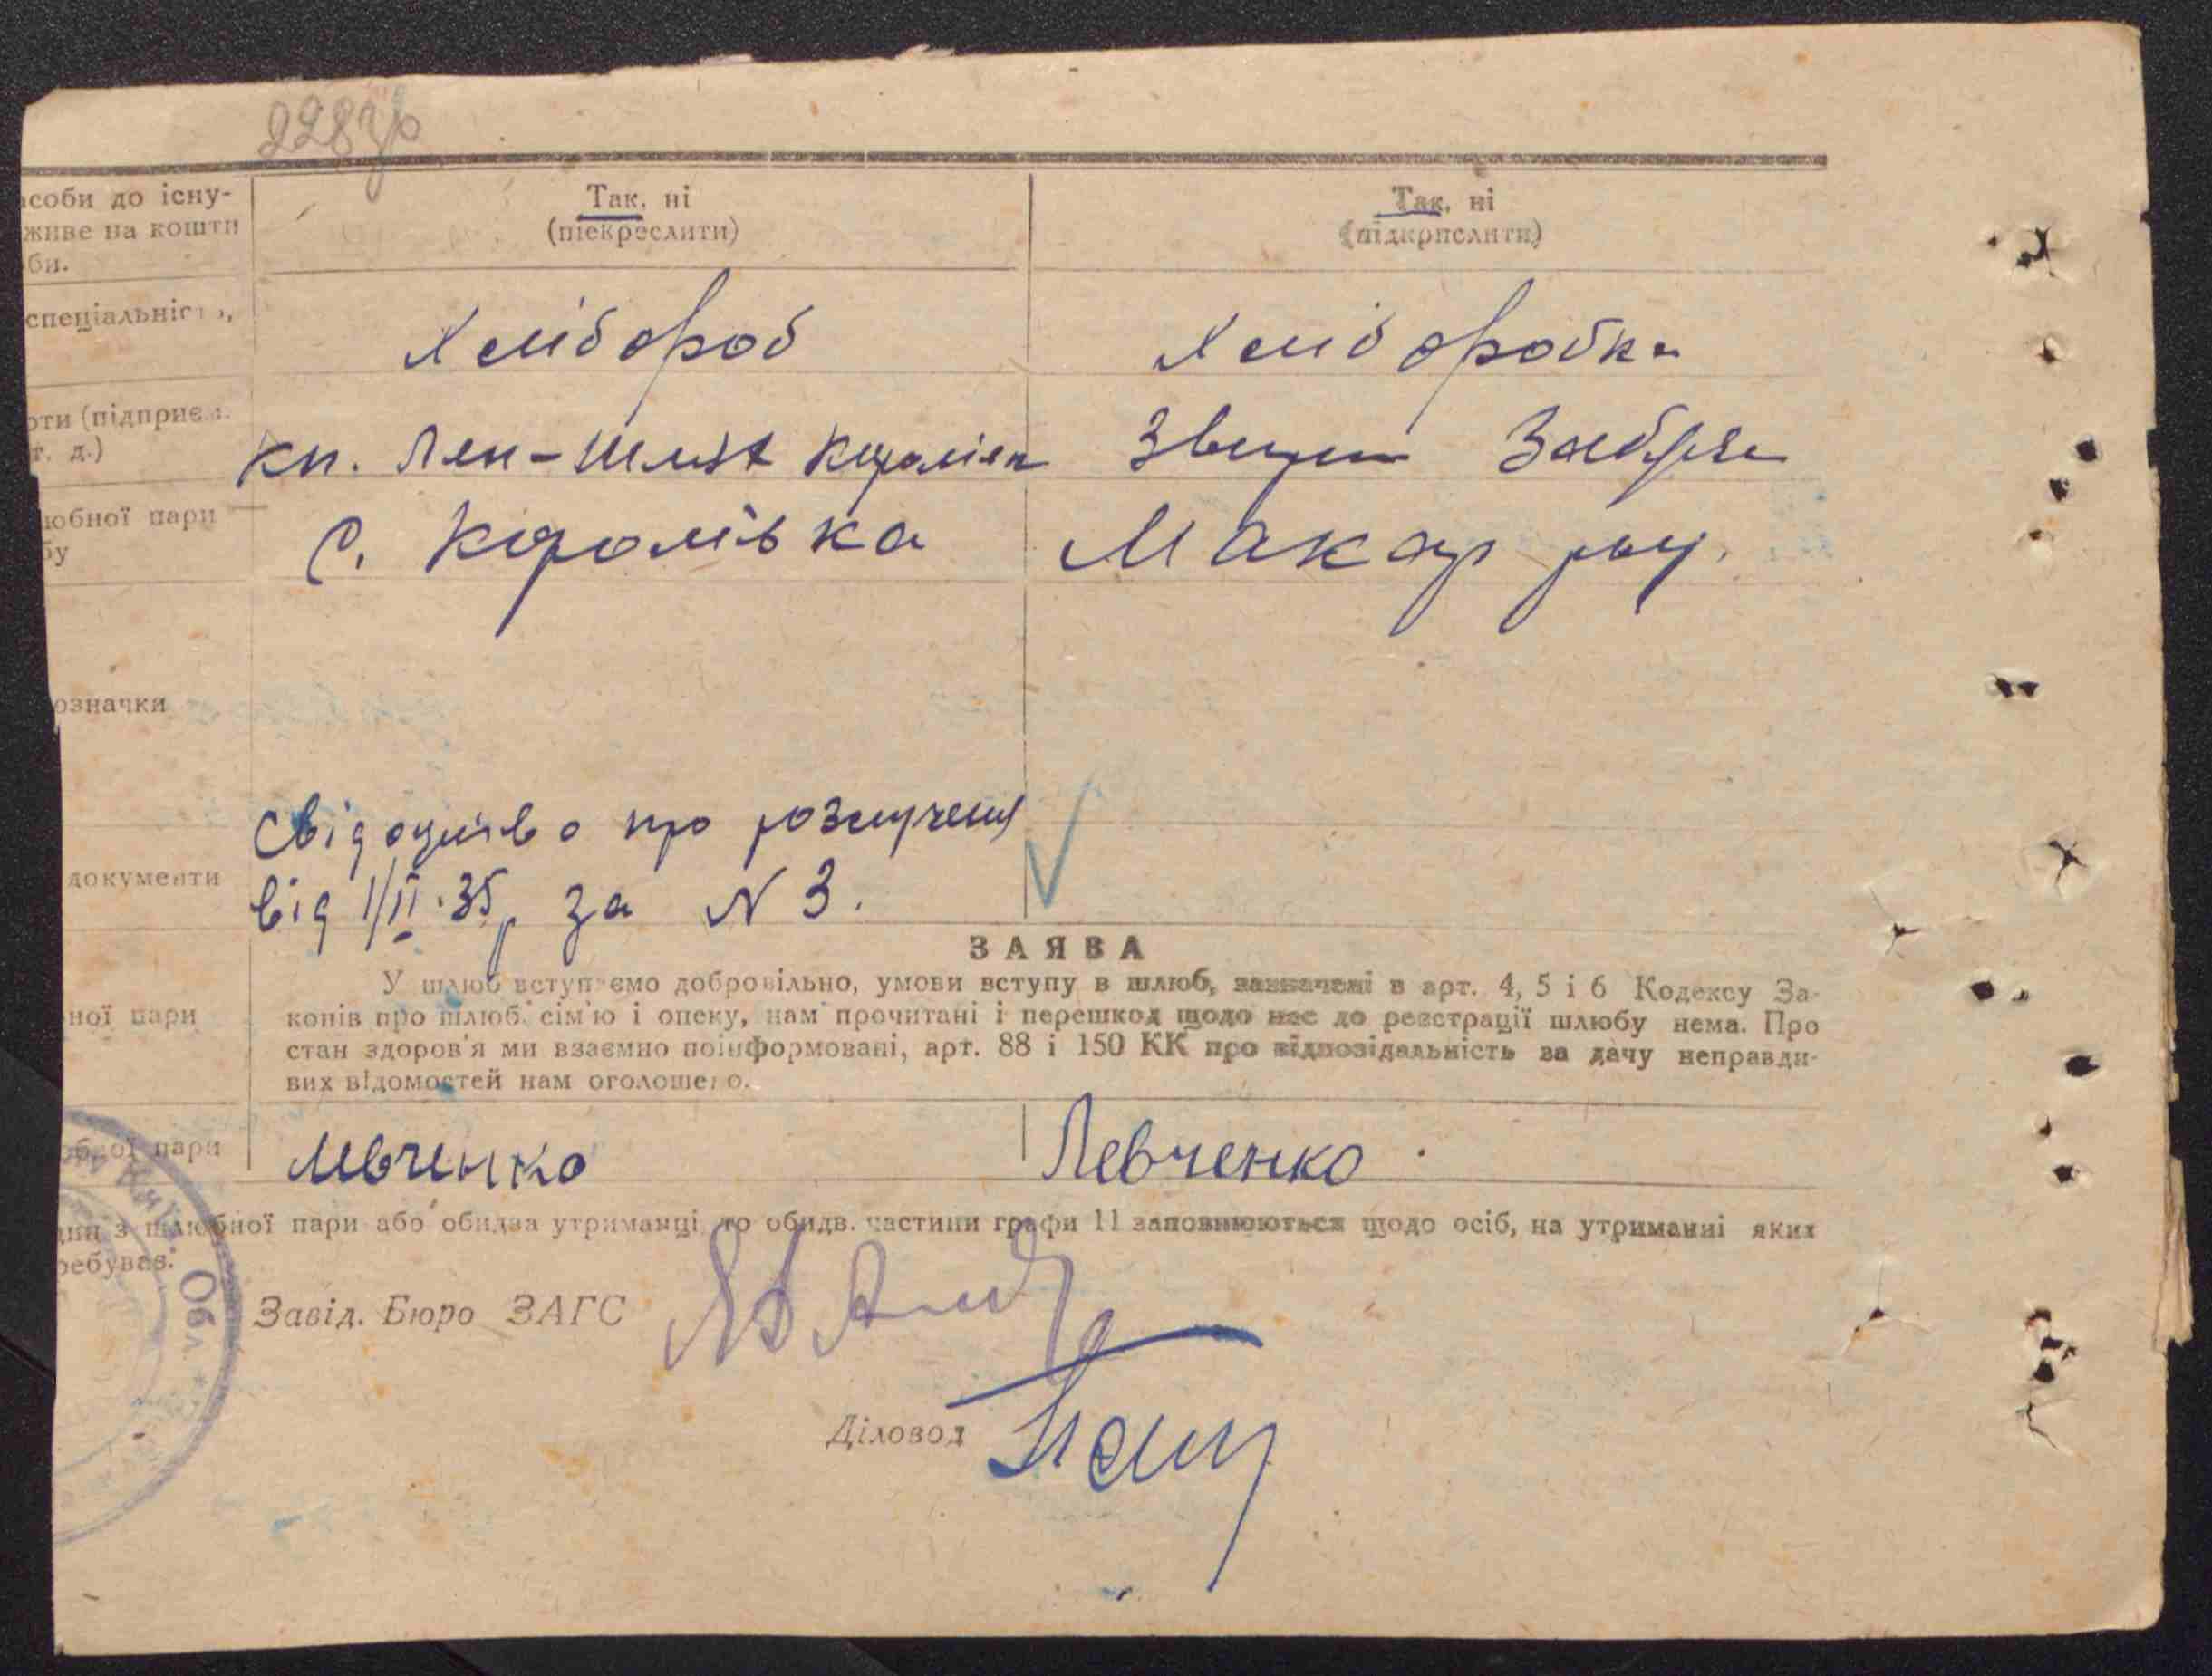 228зр
асоби до існу- Так, ні Так, ні
живе на кошти (піскреслити) (підкрислити)
би.
спеціальність, Хлібороб Хліборобка
оти (підприєм.
т. д.) кп.
юбної пари с. Королівка Макар рну.
бу
означки
Свідоцтво про розлученя
документи
від 1/II.35р за N 3.
ЗАЯВА
У шлюб вступаємо добровільно, умови вступу в шлюб, зазначені в арт. 4, 5 і 6 Кодексу За-
ної пари конів про шлюб, сім'ю і опеку, нам прочитані і перешкод щодо нас до реєстрації шлюбу нема. Про
стан здоров'я ми взаємно поінформовані, арт. 88 і 150 КК про відповідальність за дачу неправди-
вих відомостей нам оголошено.
юбної пари Левченко Левченко
дин з шлюбної пари або обидва утриманці то обидв. частини графи 11 заповнюються щодо осіб, на утриманні яких
ребуває.
Обл.
Завід. Бюро ЗАГС
Діловод